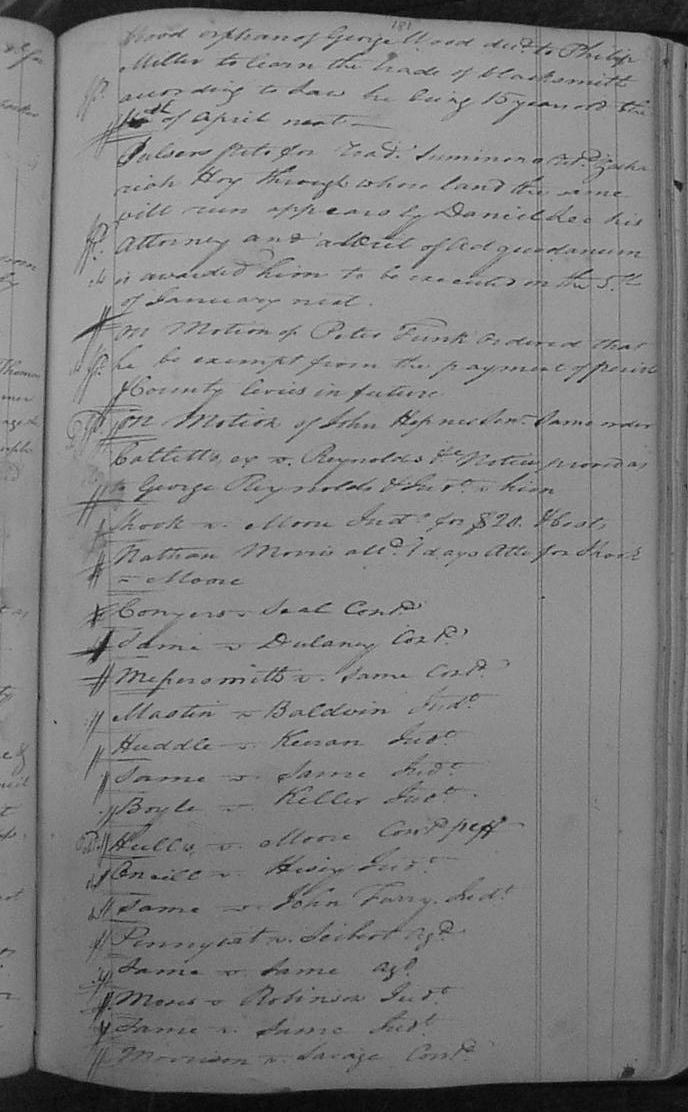 181
Wood orphan of George Wood decd. to Philip
Miller to learn the trade of blacksmith
according to Law he being 15 years old the
of April next
pets for road. Summons retd.
riah Hoy through whose land the same
will run appears by Daniel Lee his
Attorney and a Writ of Ad quodanum
is awarded him to be executed on the 5th
of January next.
On Motion of Peter Funk Ordered that
he be exempt from the payment of parish
& County levies in future
On Motion of John Hepner Senr. Same order
Catletts, ex v. Reynolds &c Notice proved as
to George Reynolds & Judt. v him
Shook v. Moore Judt. for $20. & Costs
Nathan Morris alld. 1 days Atte for Shook
v Moore
Conyers v Seal Contd.
Same v Dulaney Contd.
Messersmith v. Same Contd.
Mastin v Baldwin Judt.
Huddle v. Keeran Judt.
Same v Same Judt.
Boyle v Keller Judt.
Hulls, v. Moore Contd. peff
Oneill v Judt.
Same v John Furry. Judt.
Pennywit v. Seibert agd.
Same v Same agd.
Moses v Robinson Judt.
Same v. Same Judt.
Morrison v. Savage Contd.